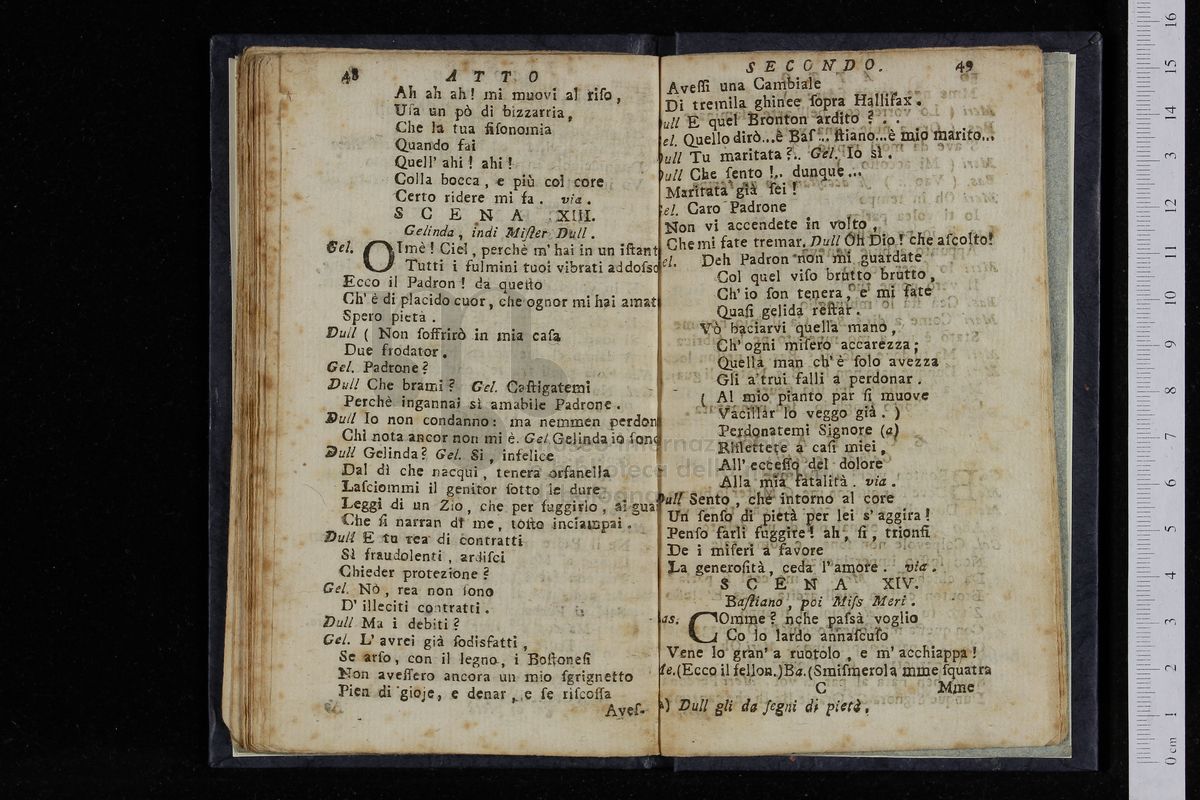 48 ATTO
Ah ah ah! mi muovi al riſo,
Uſa un pò di bizzarria,
Che la tua fiſonomia
Quando fai
Quell' ahi! ahi!
Colla bocca, e più col core
Certo ridere mi fa. via.
SCENA XIII.
Gelinda, indi Miſter Dull.
Gel. OImè! Ciel, perchè m' hai in un iſtant
Tutti i fulmini tuoi vibrati addoſso
Ecco il Padron! da queſto
Ch' è di placido cuor, che ognor mi hai amat
Spero pietà.
Dull ( Non ſoffrirò in mia caſa
Due frodator.
Gel. Padrone?
Dull Che brami? Gel. Caſtigatemi
Perchè ingannai sì amabile Padrone.
Dull Io non condanno: ma nemmen perdon
Chi nota ancor non mi è. Gel Gelinda io ſono
Dull Gelinda? Gel. Si, infelice
Dal dì che nacqui, tenera orfanella
Laſciommi il genitor ſotto le dure
Leggi di un Zio, che per fuggirlo, ai gua
Che ſi narran di me, toſto inciampai.
Dull E tu rea di contratti
Sì fraudolenti, ardiſci
Chieder protezione?
Gel. Nò, rea non ſono
D' illeciti contratti.
Dull Ma i debiti?
Gel. L' avrei già ſodisfatti,
Se arſo, con il legno, i Boſtoneſi
Non aveſſero ancora un mio ſgrignetto
Pien di gioje, e denar, e ſe riſcoſſa
Aveſ-
SECONDO. 49
Aveſſi una Cambiale
Di tremila ghinee ſopra Hallifax.
ull E quel Bronton ardito? . .
el. Quello dirò...è Baſ... ſtiano...è mio marito...
ull Tu maritata?.. Gel. Io sì.
ull Che ſento!.. dunque...
Maritata già ſei!
el. Caro Padrone
Non vi accendete in volto,
Che mi fate tremar. Dull Oh Dio! che aſcolto!
el. Deh Padron non mi guardate
Col quel viſo brutto brutto,
Ch' io ſon tenera, e mi fate
Quaſi gelida reſtar.
Vò baciarvi quella mano,
Ch' ogni miſero accarezza;
Quella man ch' è ſolo avezza
Gli altrui falli a perdonar.
( Al mio pianto par ſi muove
Vacillar lo veggo già. )
Perdonatemi Signore (a)
Riflettete a caſi miei,
All' ecceſſo del dolore
Alla mia fatalità. via.
Dull Sento, che intorno al core
Un ſenſo di pietà per lei s' aggira!
Penſo farli fuggire! ah, ſi, trionfi
De i miſeri a favore
La generoſità, ceda l' amore. via.
SCENA XIV.
Baſtiano, poi Miſs Meri.
as. COmme? nche paſsà voglio
Co lo lardo annaſcuſo
Vene lo gran' a ruotolo, e m' acchiappa!
Me.(Ecco il fellon.)Ba.(Smiſmerola mme ſquatra
C Mme
a) Dull gli da ſegni di pietà,